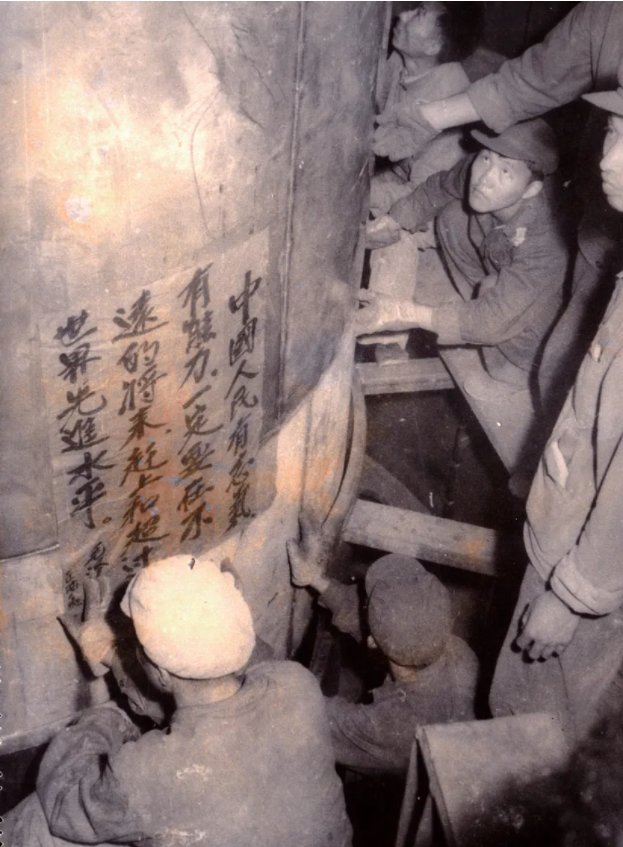 中國人民有志氣
有能力,一定要在不
遠的將来赶上和超过
世界先進水平。